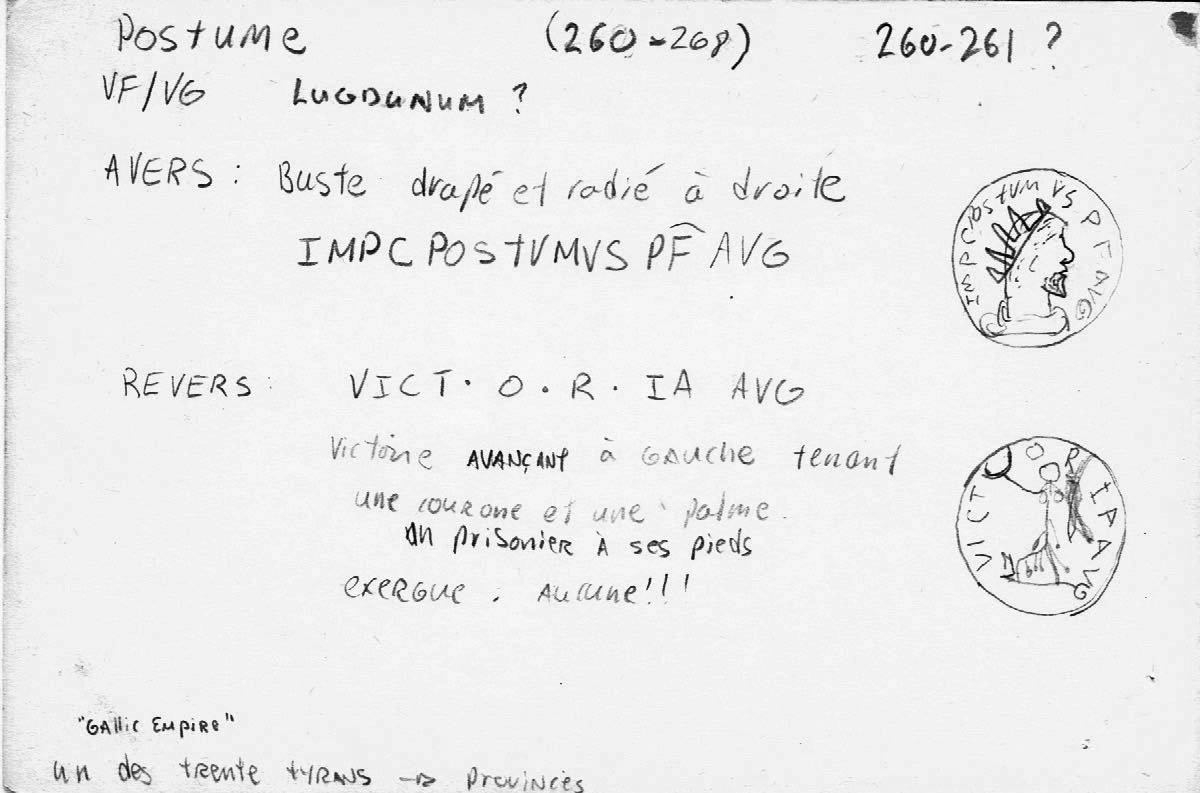 Postume (260-268) 260-261 ?
VF/VG LUGDUNUM ?
AVERS : Buste drapé et radié à droite
IMPC POSTVMVS PF AVG
IMPCPOSTVMVS PFAVG
REVERS : VICT. O. R. IA AVG
Victoire AVANÇANT à GAUCHE tenant
une courone et une palme.
un prisonier à ses pieds
exergue. Aucune!!!
VICT O R IAAVG
"Gallic Empire"
un des trente tyrans → provinces